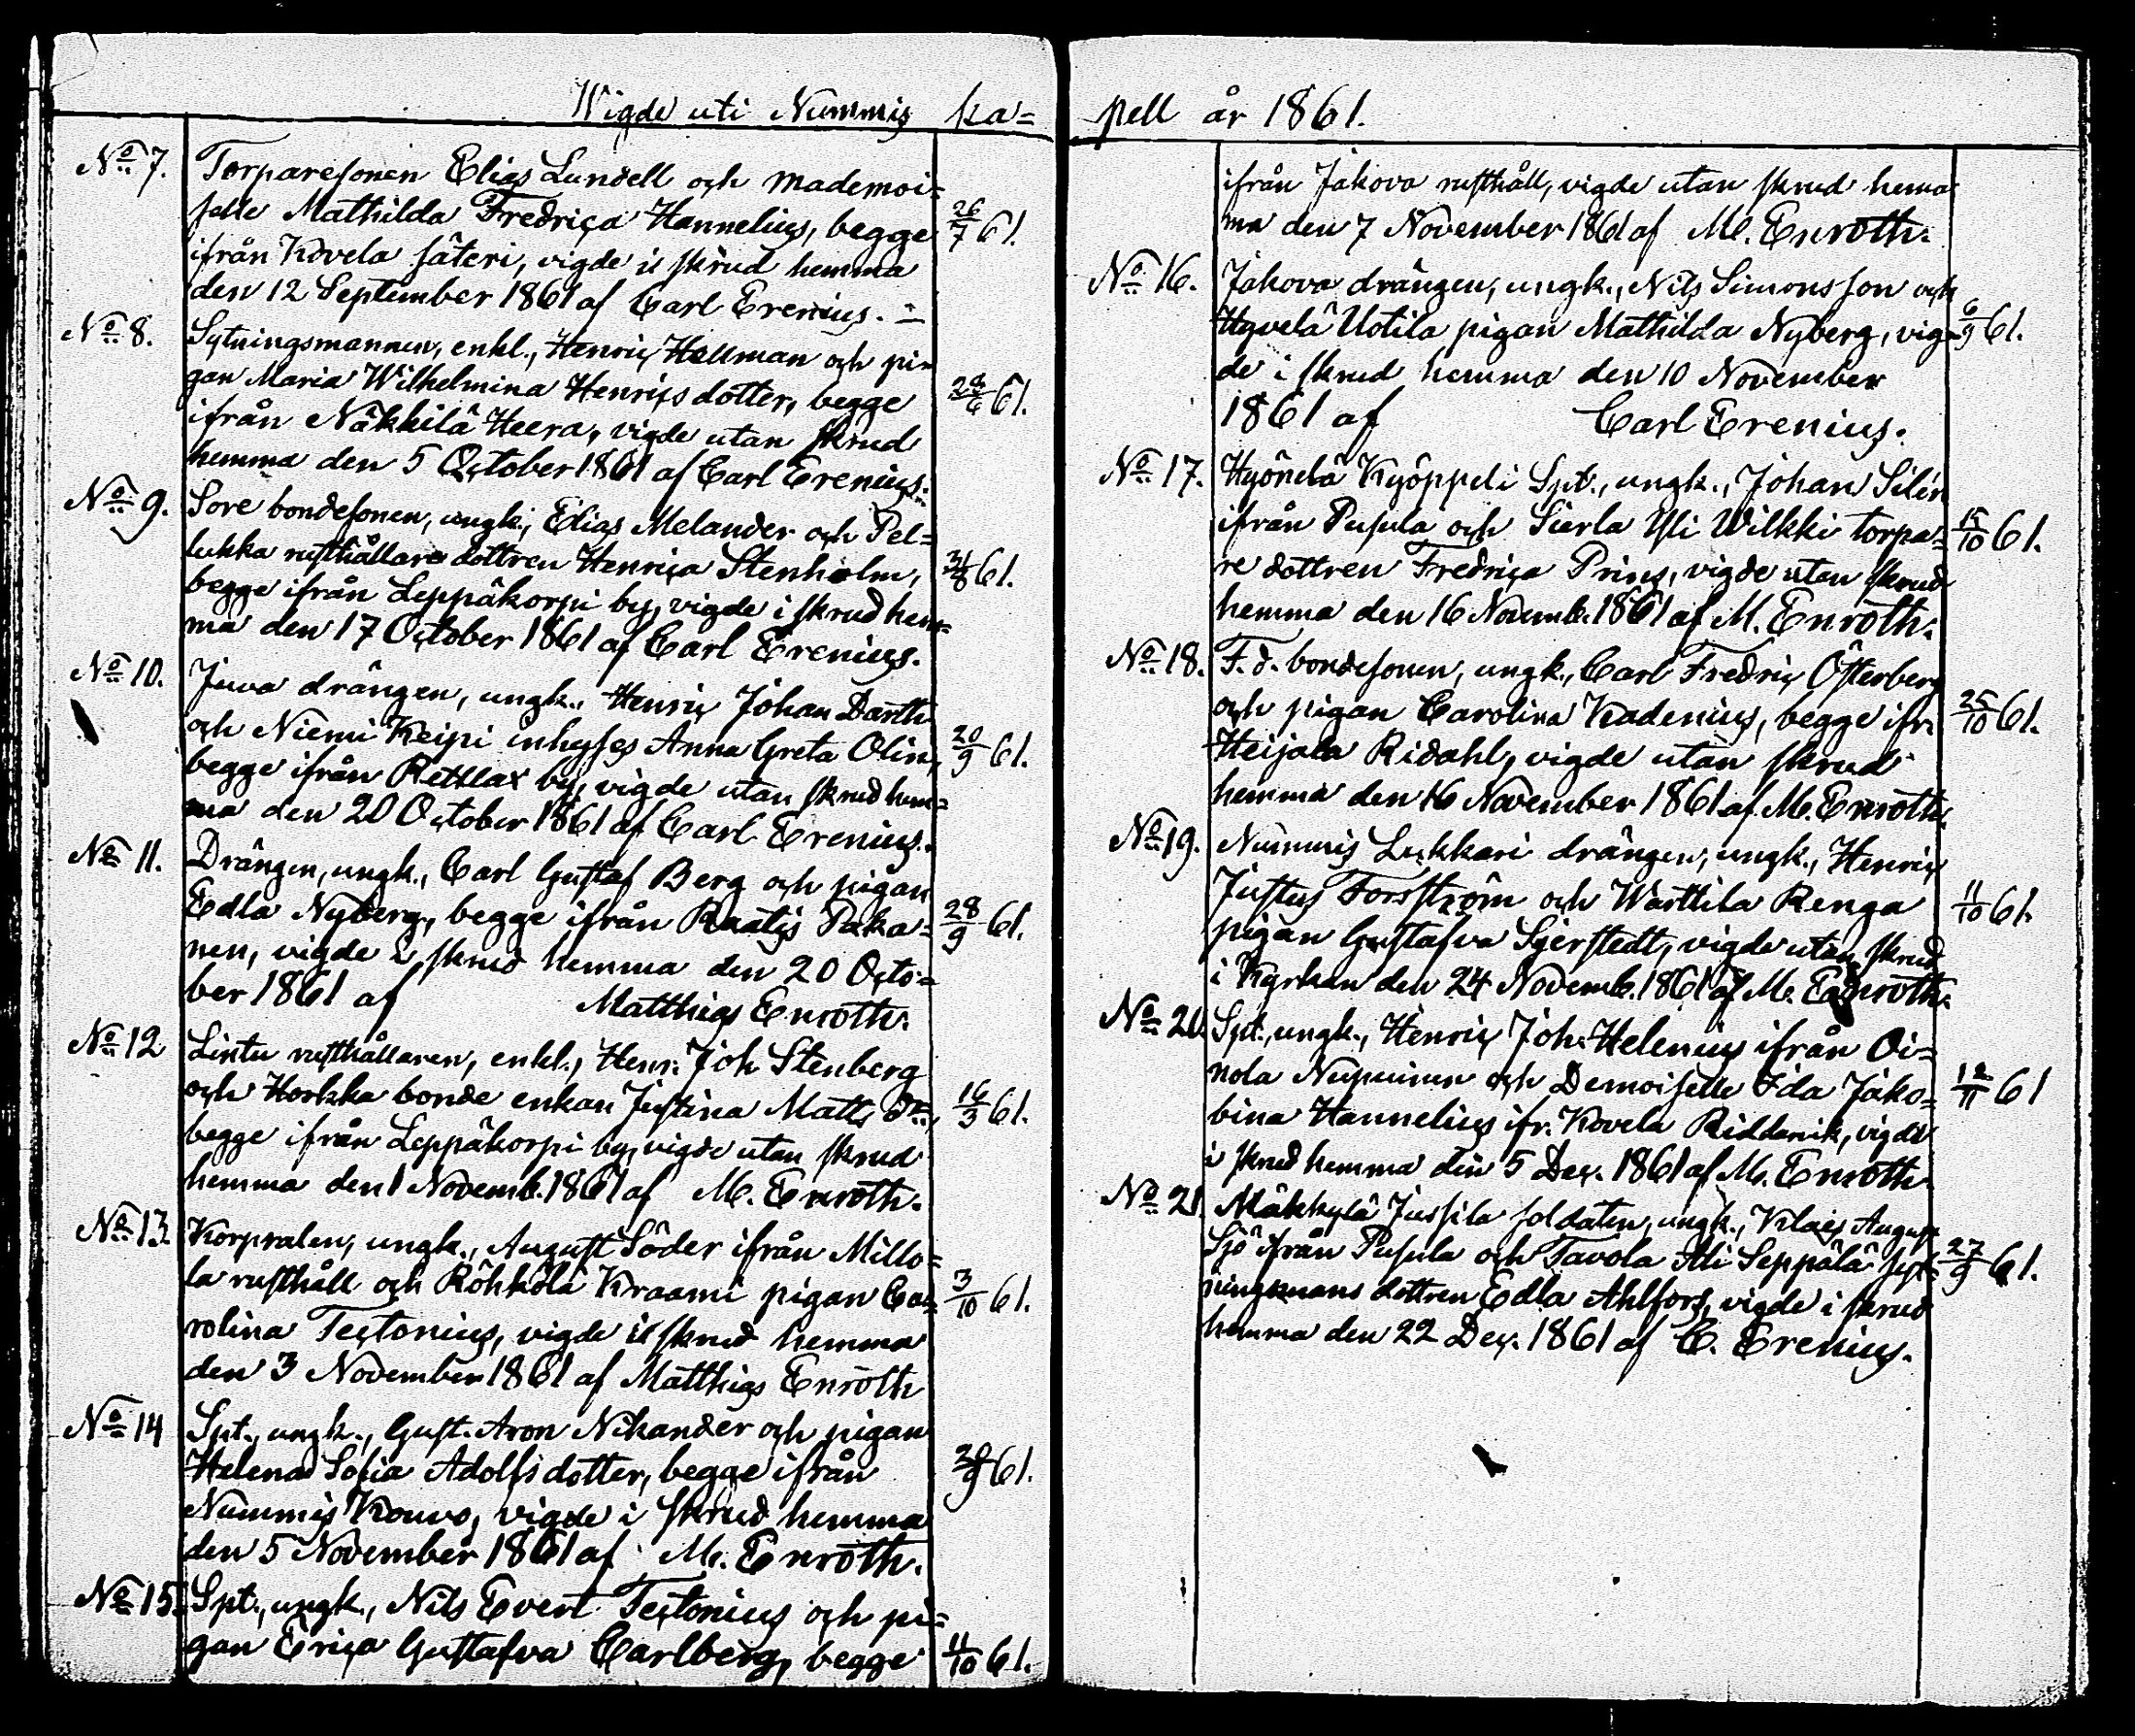 Wigde uti Nummis ka=
No 7. Torparesonen Elias Lundell och mademoi=
selle Mathilda Fredrica Hannelius, begge 26/7 61.
ifrån Kovela säteri, vigde i skrud hemma
den 12 September 1861 af Carl Erenius.
No 8. Sytningsmannen, enkl., Henric Hellman och pi=
gan Maria Wilhelmina Henricsdotter, begge 61.
ifrån Näkkilä Heera, vigde utan skrud
hemma den 5 October 1861 af Carl Erenius.
No 9. Sore bondesonen, ungk., Elias Melander och Pel=
lukka rusthållare dottren Henrica Stenholm, 61.
begge ifrån Leppäkorpi by, vigde i skrud hem=
ma den 17 October 1861 af Carl Erenius.
No 10. Juva drängen, ungk., Henric Johan Barth
och Niemi Keipi inhyses Anna Greta Olin, 20/9 61.
begge ifrån Retlax by, vigde utan skrud hem=
ma den 20 October 1861 af Carl Erenius.
No 11. Drängen, ungk., Carl Gustaf Berg och pigan
Edla Nyberg, begge ifrån Raatis Paka= 28/9 61.
nen, vigde i skrud hemma den 20 Octo=
ber 1861 af Matthias Enroth.
No 12 Lintu rusthållaren, enkl., Henr. Joh Stenberg
och Hoskka bonde enkan Justina Matts dr., 16/3 61.
begge ifrån Leppäkorpi by, vigde utan skrud
hemma den 1 Novemb. 1861 af M. Enroth.
No 13. Korpralen, ungk., August Söder ifrån Millo=
la rusthåll och Röhkölä Kraami pigan Ca= 3/10 61.
rolina Tectonius, vigde i skrud hemma
den 3 November 1861 af Matthias Enroth
No 14 Spt., ungk., Gust. Aron Nikander och pigan
Helena Sofia Adolfsdotter, begge ifrån 61.
Nummis Kouvo, vigde i skrud hemma
den 5 November 1861 af M. Enroth.
No 15. Spt., ungk., Nils Evert Tectonius och pi=
gan Erica Gustafva Carlberg, begge 11/10 61.
pell år 1861.
ifrån Jakova rusthåll, vigde utan skrud hem=
ma den 7 November 1861 af M. Enroth.
No 16. Jakova drängen, ungk., Nils Simonsson och
Hyvelä Uotila pigan Mathilda Nyberg, vig= 6/9 61.
de i skrud hemma den 10 November
1861 af Carl Erenius.
No 17. Hyönölä Kyöppeli Spt., ungk., Johan Silén
ifrån Pusula och Siarla Yli Wilkki torpa= 15/10 61.
re dottren Fredrica Prins, vigde utan skrud
hemma den 16 Novemb. 1861 af M. Enroth.
No 18. F.d. bondesonen, ungk., Carl Fredric Österberg
och pigan Carolina Kadenius, begge ifr. 25/10 61.
Heijala Ridahl, vigde utan skrud
hemma den 16 November 1861 af M. Enroth.
No 19. Nummis Lukkari drängen, ungk., Henric
Justus Forsström och Warttila Renga 11/10 61.
pigan Gustafva Sjerstedt, vigde utan skrud
i Kyrkan den 24 Novemb. 1861 af M. Enroth.
No 20. Spt., ungk., Henric Joh. Helenius ifrån Oi=
nola Nupuinen och Demoiselle Ida Jako= 12/11 61
bina Hannelius ifr. Kovela Riddanik, vigde
i skrud hemma den 5 Dec. 1861 af M. Enroth.
No 21. Mäkkylä Jussila soldaten, ungk., Klaes August
Sjö ifrån Pusula och Tavola Ali Seppälä syt= 27/9 61.
ningsmans dottren Edla Ahlfors, vigde i skrud
hemma den 22 Dec. 1861 af C. Erenius.